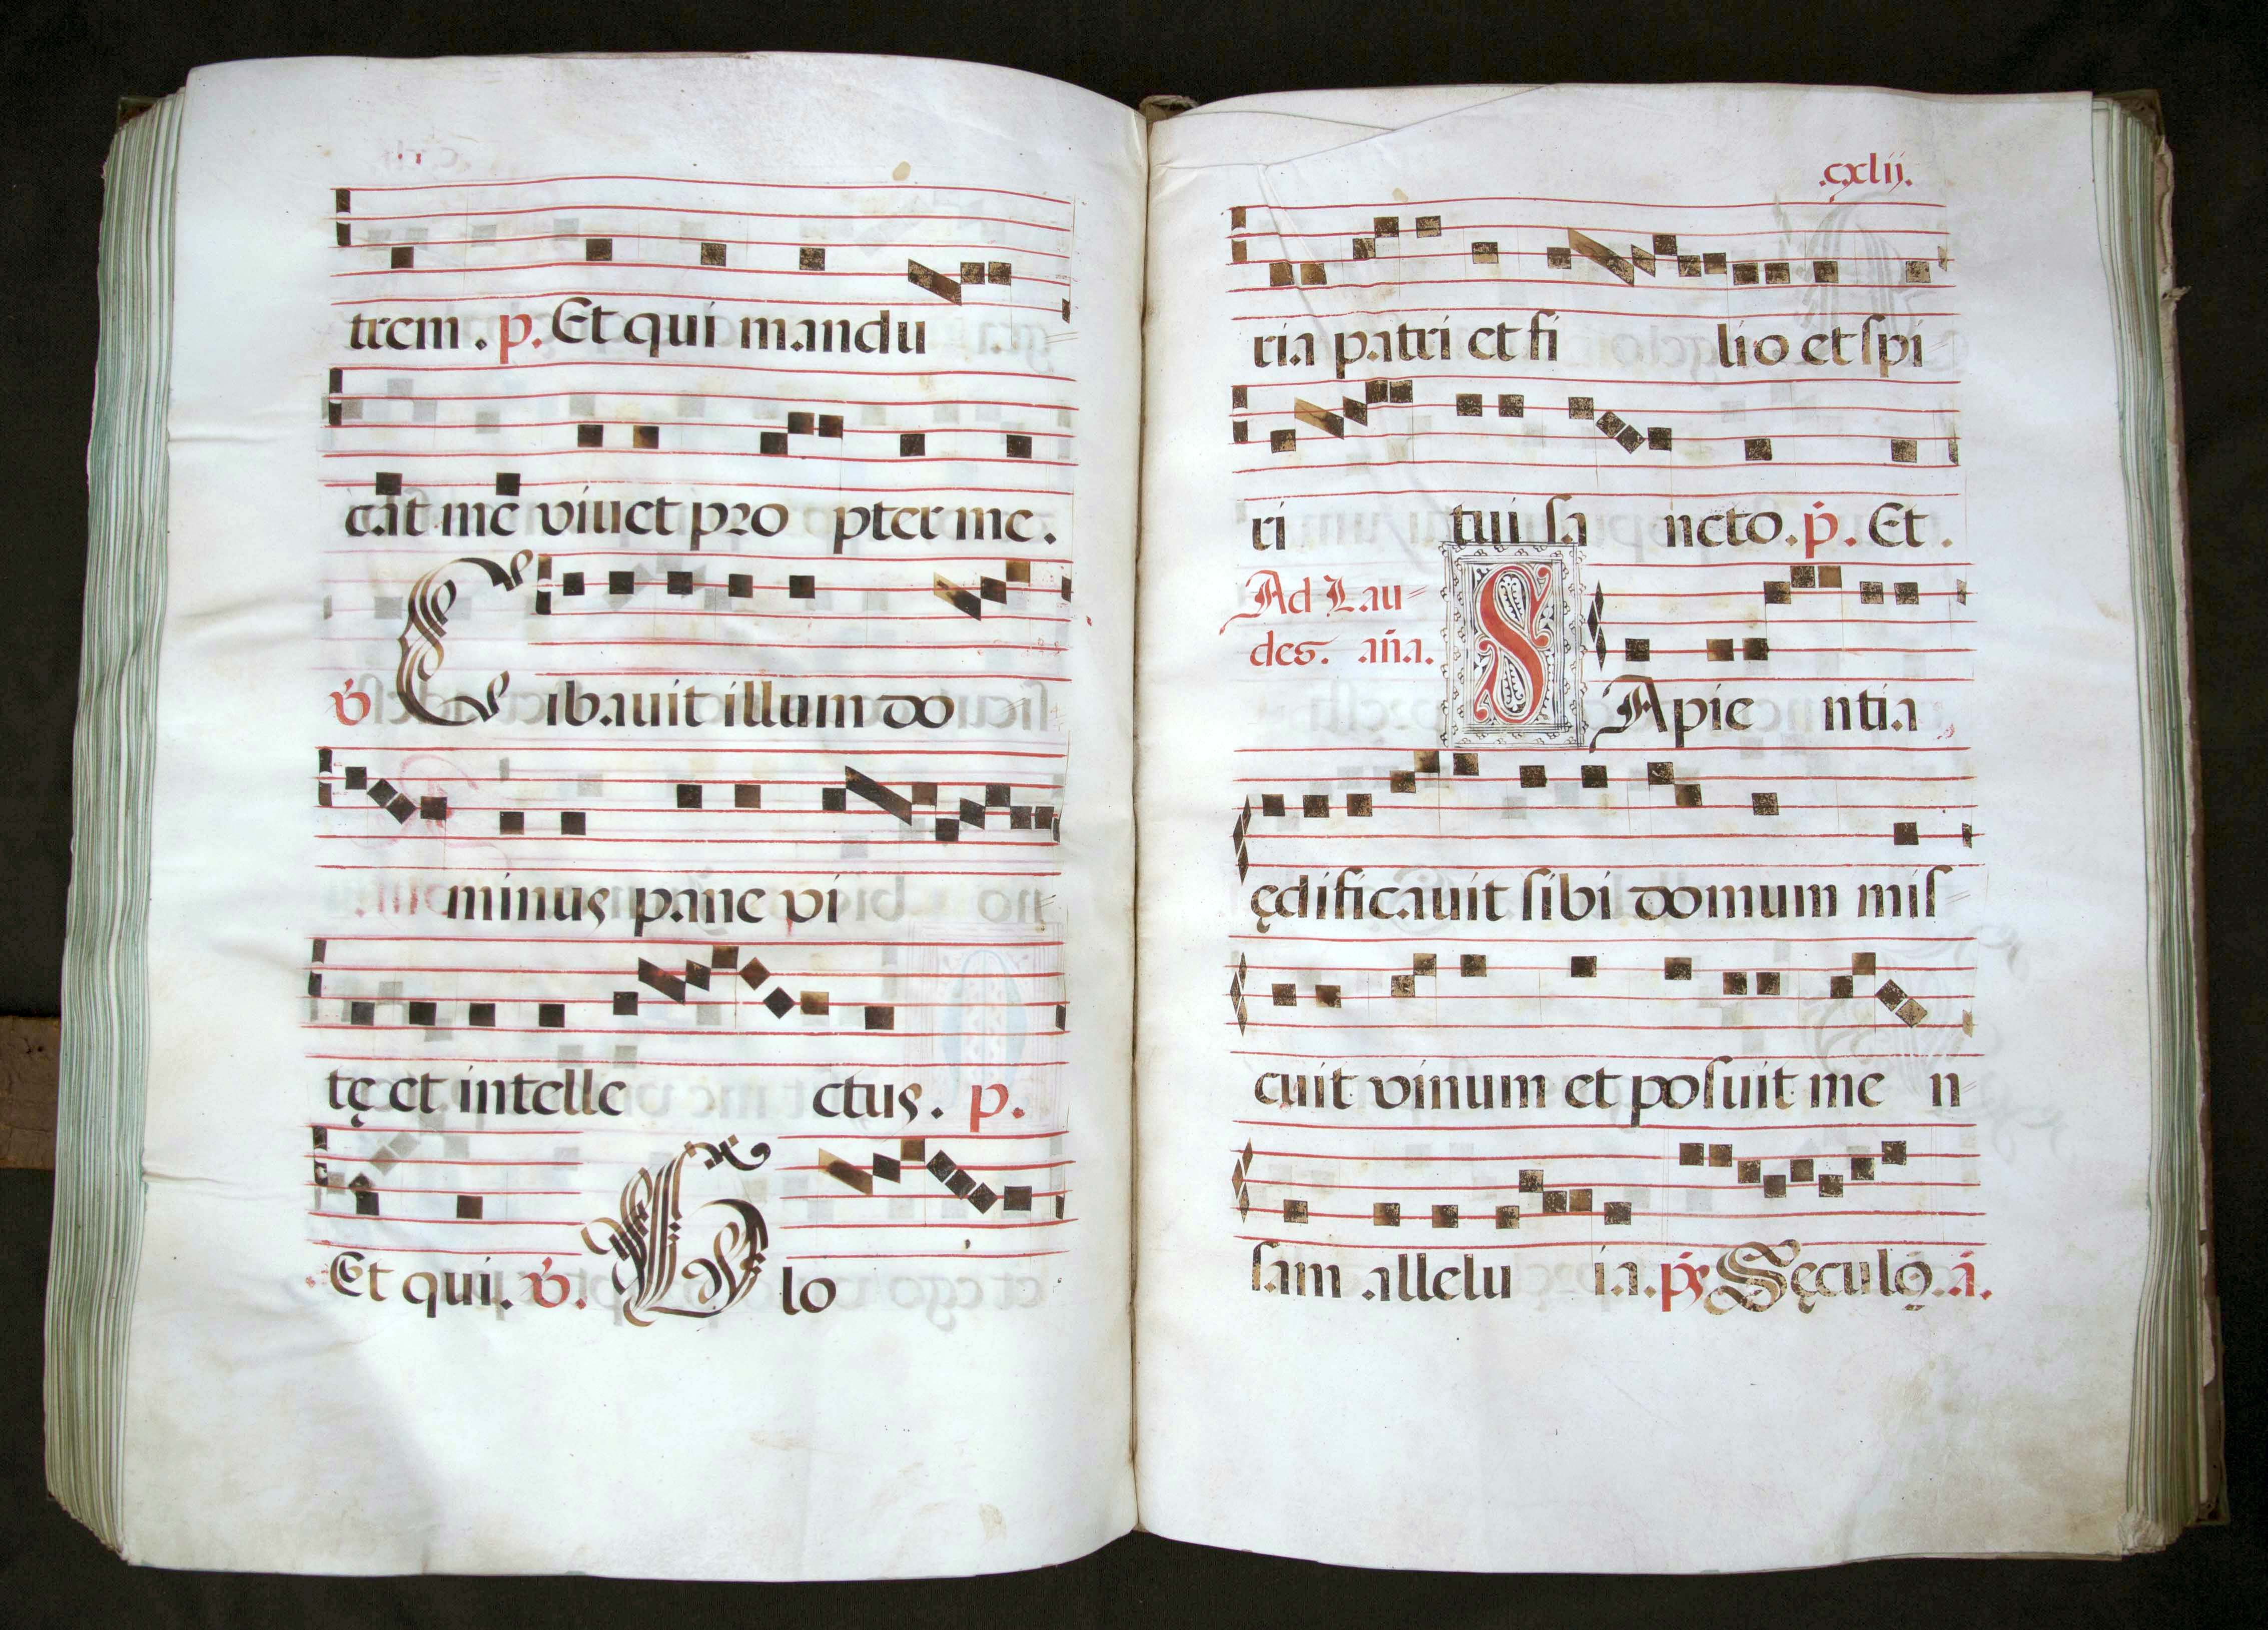 trem. p. Et qui mandu
cat me viuet pro pter me.
℣ Cibauit illum do
minus pane vi
tę et intelle ctus. p.
Et qui. ℣. Glo
.cxlij.
ria patri et fi lio et ſpi
ri tui ſa ncto. p̃. Et.
Ad Lau=
des. aña.
SApie ntia
ędificauit ſibi domum miſ
cuit vinum et poſuit me n
ſam allelu ia. ps̃ Sęculo᷒. ã.